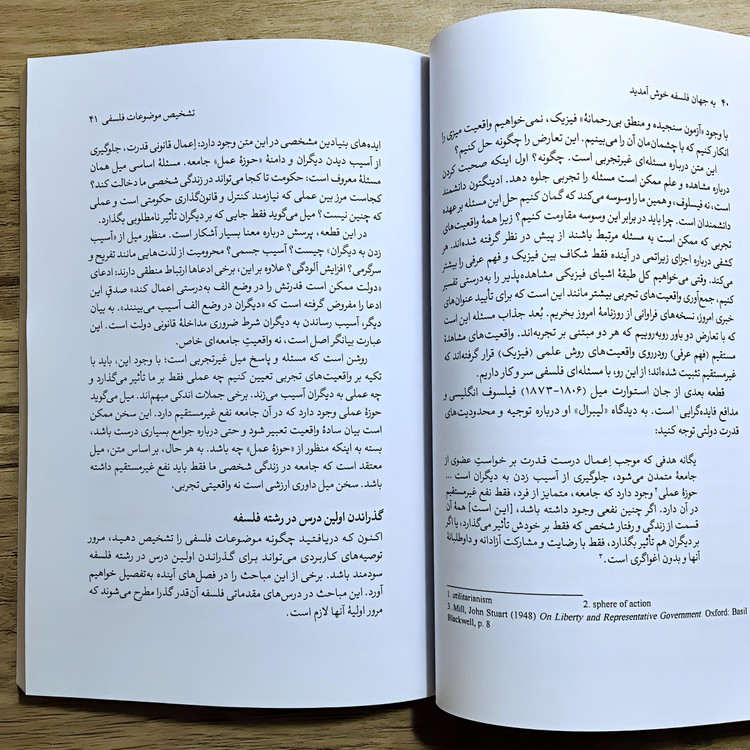 ۴۰ به جهان فلسفه خوش آمدید
با وجود «آزمون سنجیده و منطق بی‌رحمانهٔ» فیزیک، نمی‌خواهیم واقعیت میزی را
انکار کنیم که با چشمان‌مان آن را می‌بینیم. این تعارض را چگونه حل کنیم؟
این متن درباره مسئله‌ای غیرتجربی است. چگونه؟ اول اینکه صحبت کردن
درباره مشاهده و علم ممکن است مسئله را تجربی جلوه دهد. ادینگتون دانشمند
است، نه فیلسوف، و همین ما را وسوسه می‌کند که گمان کنیم حل این مسئله بر عهده
دانشمندان است. چرا باید در برابر این وسوسه مقاومت کنیم؟ زیرا همهٔ واقعیت‌های
تجربی که ممکن است به مسئله مرتبط باشند از پیش در نظر گرفته شده‌اند. هر
کشفی درباره اجزای زیراتمی در آینده فقط شکاف بین فیزیک و فهم عرفی را بیشتر
می‌کند. وقتی می‌خواهیم کل طبقهٔ اشیای فیزیکی مشاهده‌پذیر را به‌درستی تفسیر
کنیم، جمع‌آوری واقعیت‌های تجربی بیشتر مانند این است که برای تأیید عنوان‌های
خبری امروز، نسخه‌های فراوانی از روزنامهٔ امروز بخریم. بُعد جذاب مسئله این است
که با تعارض دو باور روبه‌روییم که هر دو مبتنی بر تجربه‌اند. واقعیت‌های مشاهدهٔ
مستقیم (فهم عرفی) رودرروی واقعیت‌های روش علمی (فیزیک) قرار گرفته‌اند که
غیرمستقیم تثبیت شده‌اند؛ از این رو، با مسئله‌ای فلسفی سر و کار داریم.
قطعه بعدی از جان استوارت میل (۱۸۰۶-۱۸۷۳) فیلسوف انگلیسی و
مدافع فایده‌گرایی۱ است. به دیدگاه «لیبرال» او درباره توجیه و محدودیت‌های
قدرت دولتی توجه کنید:
یگانه هدفی که موجب اِعمال درست قدرت بر خواستِ عضوی از
جامعهٔ متمدن می‌شود، جلوگیری از آسیب زدن به دیگران است ...
حوزهٔ عملی۲ وجود دارد که جامعه، متمایز از فرد، فقط نفع غیرمستقیم
در آن دارد. اگر چنین نفعی وجود داشته باشد، [این است] همهٔ آن
قسمت از زندگی و رفتار شخص که فقط بر خودش تأثیر می‌گذارد، یا اگر
بر دیگران هم تأثیر بگذارد، فقط با رضایت و مشارکت آزادانه و داوطلبانهٔ
آنها و بدون اغواگری است.۳
1. utilitarianism 2. sphere of action
3. Mill, John Stuart (1948) On Liberty and Representative Government. Oxford: Basil
Blackwell, p. 8
تشخیص موضوعات فلسفی ۴۱
ایده‌های بنیادین مشخصی در این متن وجود دارد: اِعمال قانونی قدرت، جلوگیری
از آسیب دیدن دیگران و دامنهٔ «حوزهٔ عمل» جامعه. مسئلهٔ اساسی میل همان
مسئلهٔ معروف است: حکومت تا کجا می‌تواند در زندگی شخصی ما دخالت کند؟
کجاست مرز بین عملی که نیازمند کنترل و قانون‌گذاری حکومتی است و عملی
که چنین نیست؟ میل می‌گوید فقط جایی که بر دیگران تأثیر نامطلوبی بگذارد.
در این قطعه، پرسش درباره معنا بسیار آشکار است. منظور میل از «آسیب
زدن به دیگران» چیست؟ آسیب جسمی؟ محرومیت از لذت‌هایی مانند تفریح و
سرگرمی؟ افزایش آلودگی؟ علاوه بر این، برخی ادعاها ارتباط منطقی دارند: ادعای
«دولت ممکن است قدرتش را در وضع الف به‌درستی اعمال کند» صدقِ این
ادعا را مفروض گرفته است که «دیگران در وضع الف آسیب می‌بینند». به بیان
دیگر، آسیب رساندن به دیگران شرط ضروری مداخلهٔ قانونی دولت است. این
عبارت بیانگر اصل است، نه واقعیتِ جامعه‌ای خاص.
روشن است که مسئله و پاسخ میل غیرتجربی است؛ با وجود این، باید با
تکیه بر واقعیت‌های تجربی تعیین کنیم چه عملی فقط بر ما تأثیر می‌گذارد و
چه عملی به دیگران آسیب می‌زند. برخی جملات اندکی مبهم‌اند. میل می‌گوید
حوزهٔ عملی وجود دارد که در آن جامعه نفع غیرمستقیم دارد. این سخن ممکن
است بیان سادهٔ واقعیت تعبیر شود و حتی درباره جوامع بسیاری درست باشد،
بسته به اینکه منظور از «حوزهٔ عمل» چه باشد. به هر حال، بر اساس متن، میل
معتقد است که جامعه در زندگی شخصی ما فقط باید نفع غیرمستقیم داشته
باشد. سخن میل داوری ارزشی است نه واقعیتی تجربی.
گذراندن اولین درس در رشته فلسفه
اکنون که دریافتید چگونه موضوعات فلسفی را تشخیص دهید، مرور
توصیه‌های کاربردی می‌تواند برای گذراندن اولین درس در رشته فلسفه
سودمند باشد. برخی از این مباحث را در فصل‌های آینده به‌تفصیل خواهیم
آورد. این مباحث در درس‌های مقدماتی فلسفه آن‌قدر گذرا مطرح می‌شوند که
مرور اولیهٔ آنها لازم است.